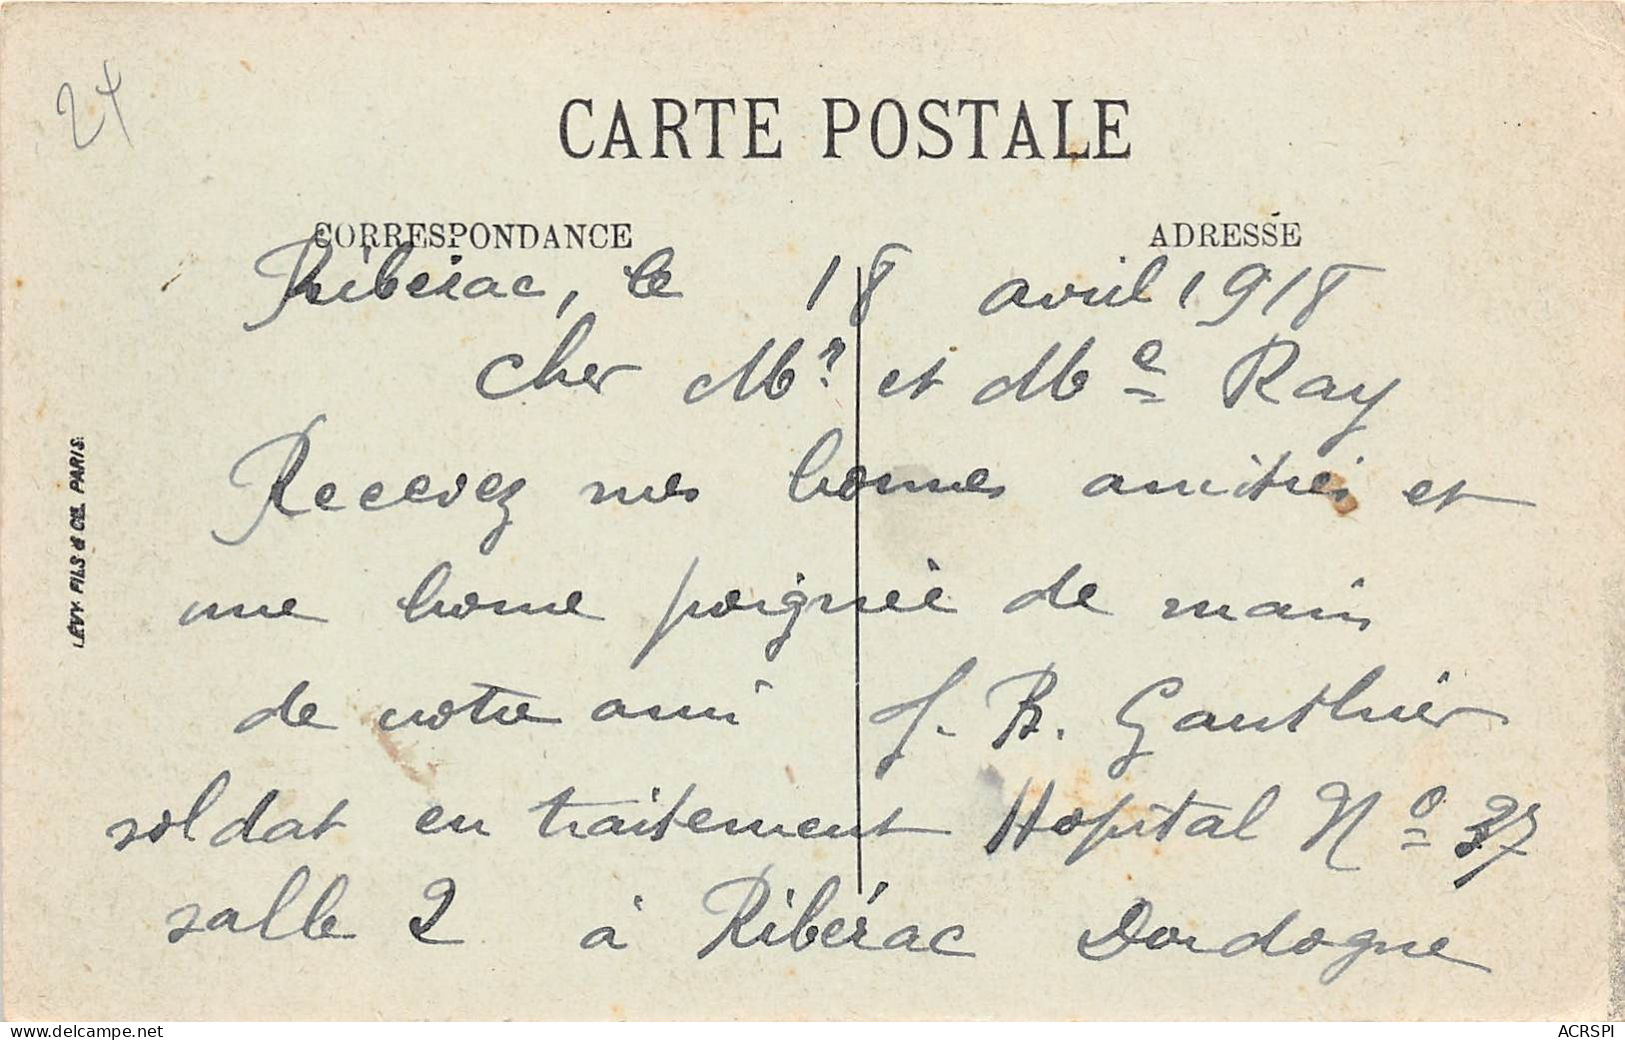 24
CARTE POSTALE
CORRESPONDANCE
ADRESSE
Ribérac, le 18 avril 1918
Cher Mr et Me Ray
Recevez mes bonnes amitiés et
une bonne poignée de main
de votre ami J. B. Gauthier
soldat en traitement Hopital No 37
salle 2 à Ribérac Dordogne
LÉVY FILS & CIE. PARIS.
www.delcampe.net
ACRSPI